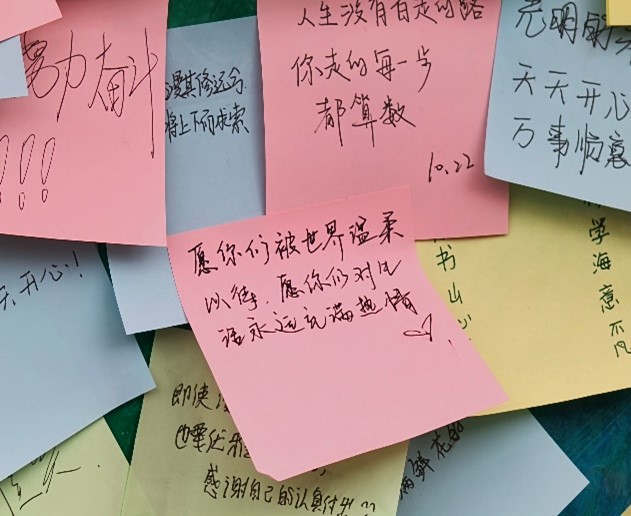 努力奋斗
!!!
漫其修远兮
将上下而求索
人生没有白走的路
你走的每一步
都算数
10.22
天天开心
万事顺意
天开心!
愿你们被世界温柔
以待,愿你们对生
活永远充满热情
书山
学海意不凡
即使
也要
感谢自己的认真付出
满鲜花的